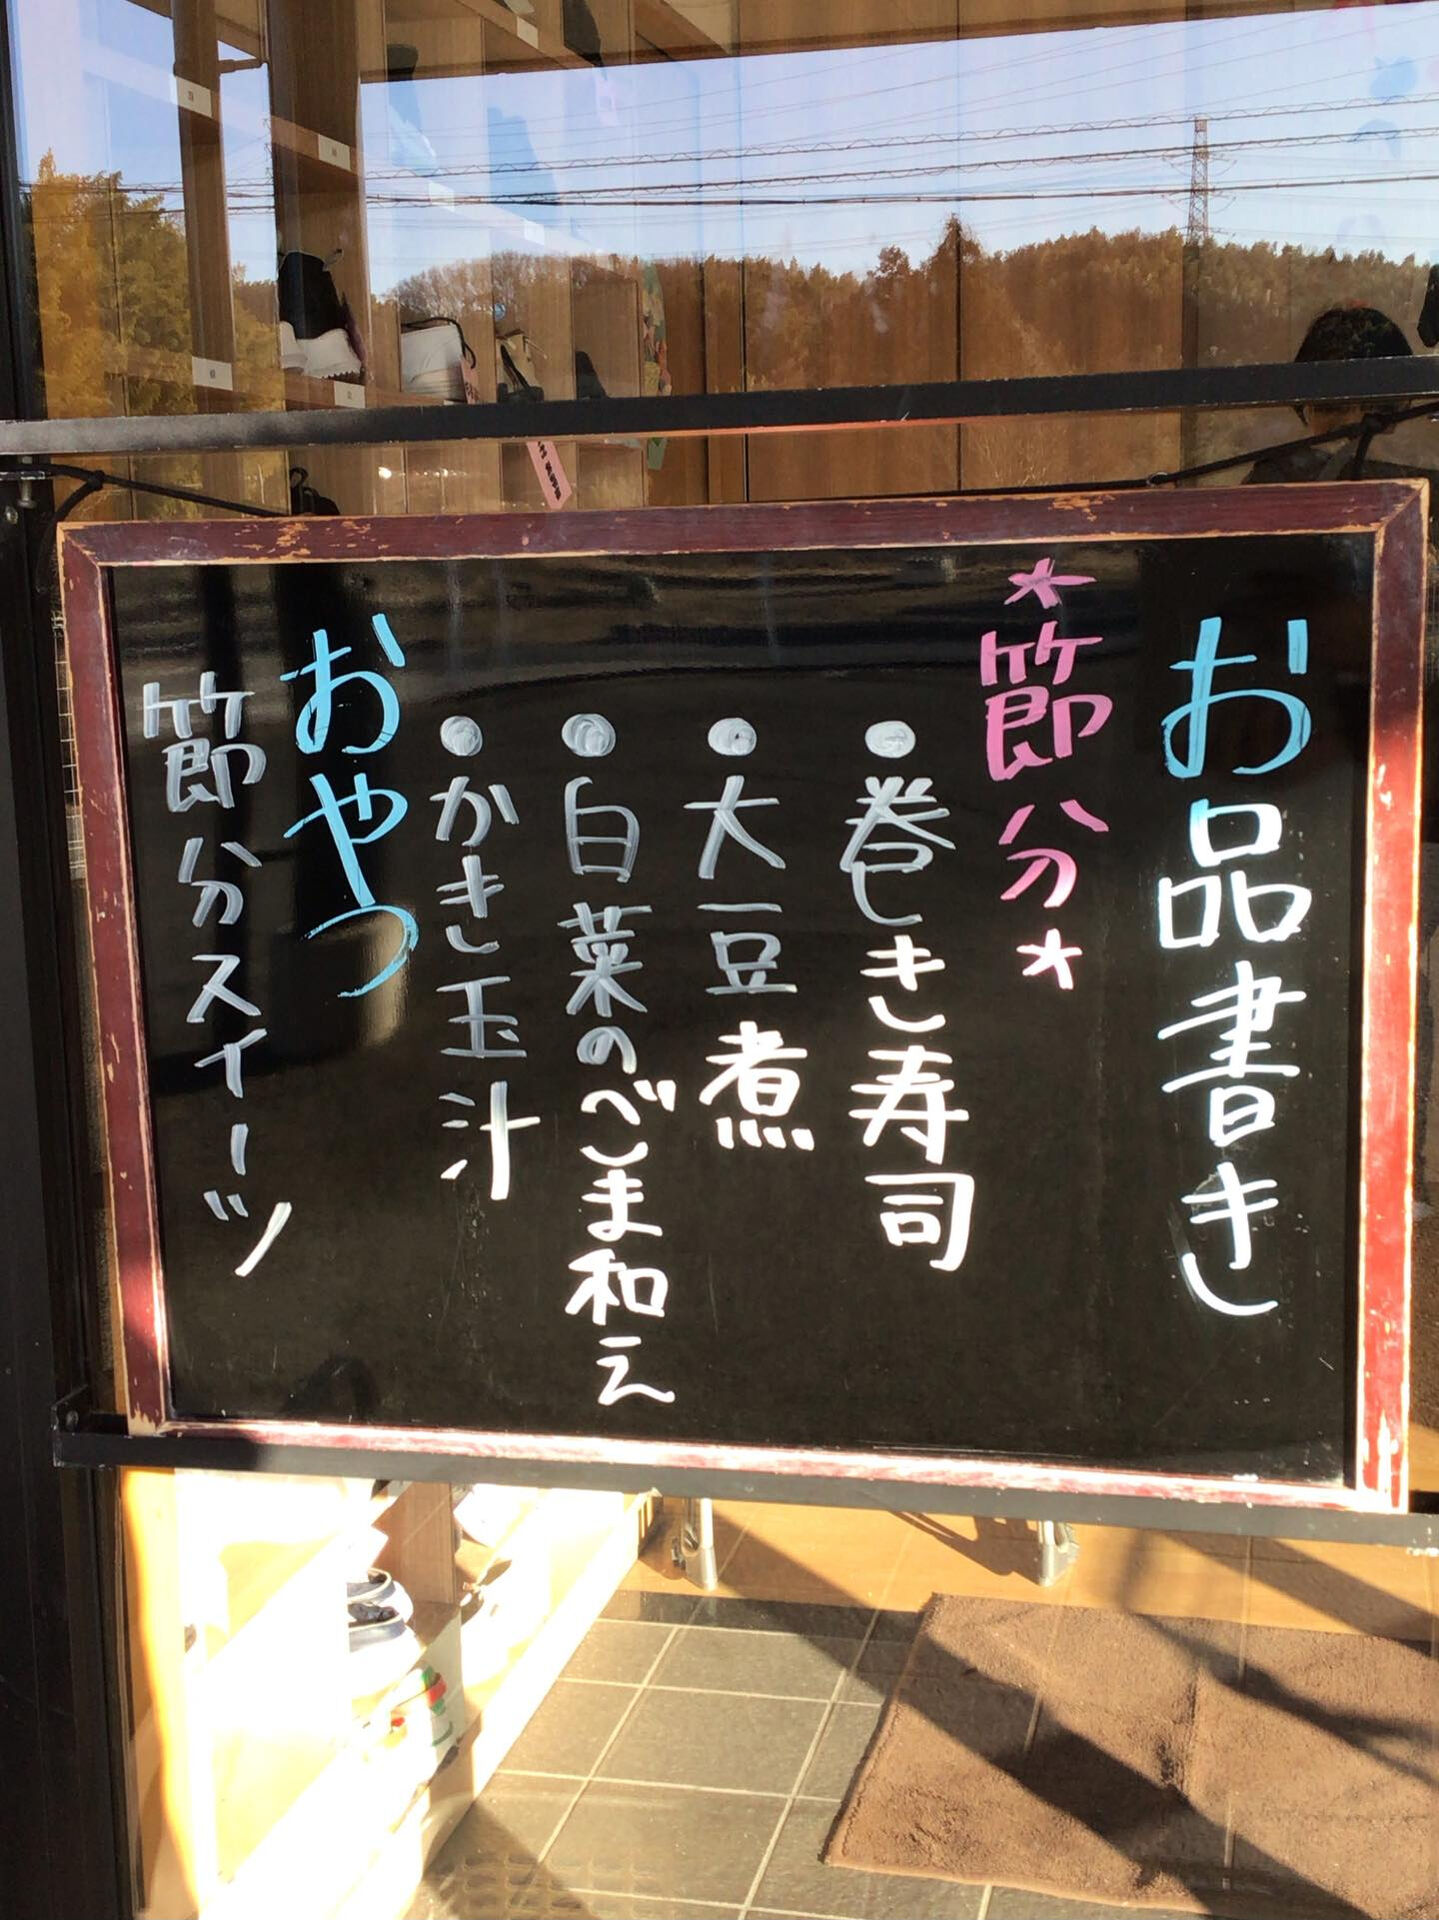 お品書き
*節分*
●巻き寿司
●大豆煮
●白菜のごま和え
●かき玉汁
おやつ
節分スイーツ